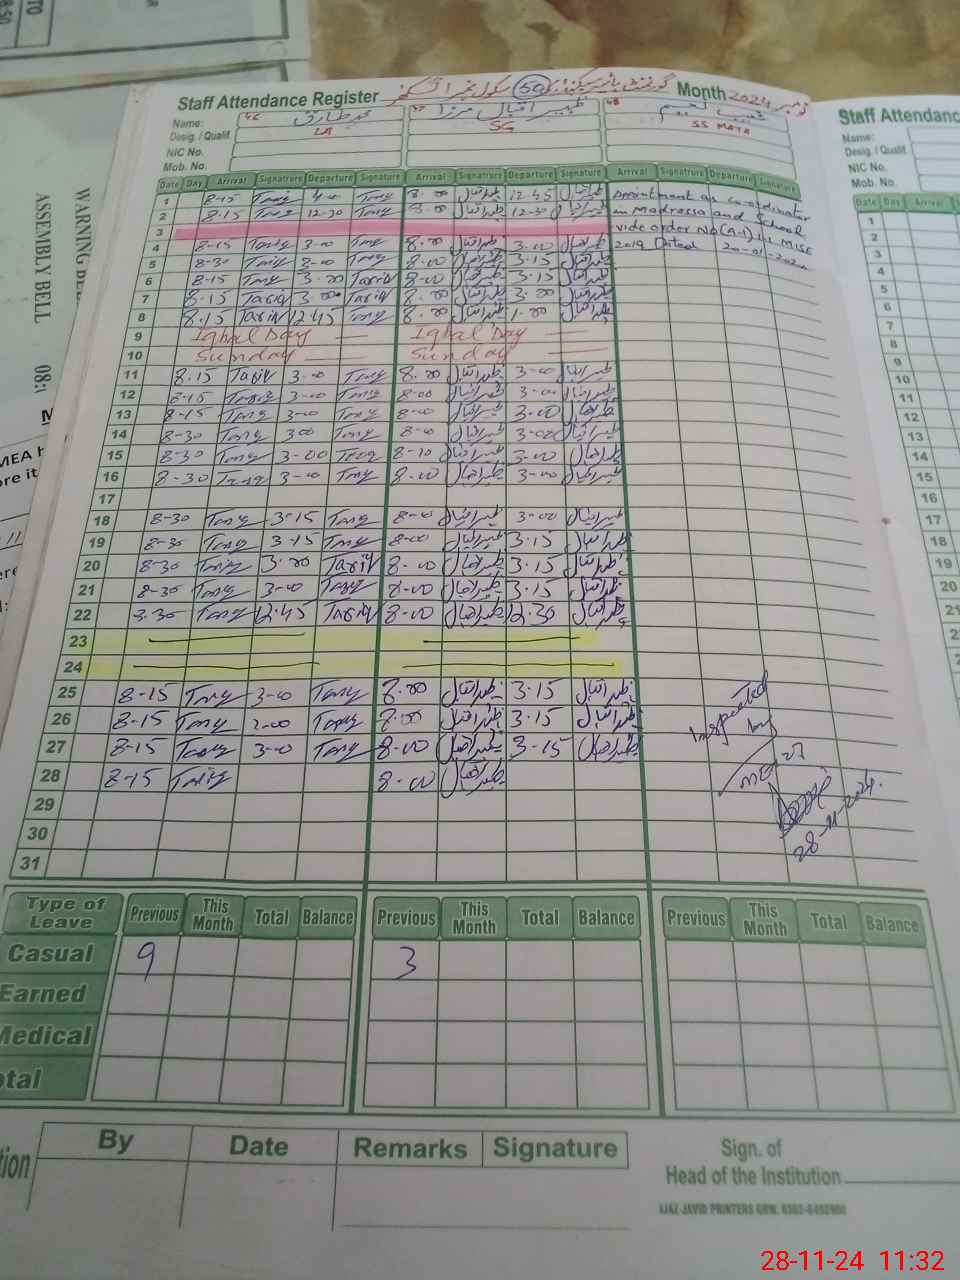 TO
8:50
WARNING BELL
ASSEMBLY BELL 08:
Staff Attendance Register گورنمنٹ ہائر سیکنڈری سکول نمبر Month نومبر 2024
Name: 46 محمد طارق 47 ظہیر اقبال مرزا 48 نعیم
Desig. / Qualif. LA SG SS MATH
NIC No.
Mob. No.
Date Day Arrival Signatrure Departure Signature Arrival Signatrure Departure Signature Arrival Signatrure Departure Signature
1 8-15 Tariq Tariq 8-00 ظہیراقبال 12-45 ظہیراقبال Appointment as co-ordinator
2 8-15 Tariq 12-30 Tariq 8-00 ظہیراقبال 12-30 ظہیراقبال in Madrassa and School
3 vide order No (A-1) MISC
4 8-15 Tariq 3-00 Tariq 8-00 ظہیراقبال 3-00 ظہیراقبال 2019 Dated
5 8-30 Tariq 3-00 Tariq 8-00 ظہیراقبال 3-15 ظہیراقبال
6 8-15 Tariq 3-00 Tariq 8-00 ظہیراقبال 3-15 ظہیراقبال
7 8-15 Tariq 3-00 Tariq 8-00 ظہیراقبال 3-00 ظہیراقبال
8 8.15 Tariq 12.45 Tariq 8-00 ظہیراقبال 1-00 ظہیراقبال
9 Iqbal Day Iqbal Day
10 Sunday Sunday
11 8.15 Tariq 3-00 Tariq 8-00 ظہیراقبال 3-00 ظہیراقبال
12 8-15 Tariq 3-00 Tariq 8-00 ظہیراقبال 3-00 ظہیراقبال
13 8-15 Tariq 3-00 Tariq 8-00 ظہیراقبال 3-00 ظہیراقبال
14 8-30 Tariq 3-00 Tariq 8-00 ظہیراقبال 3-00 ظہیراقبال
15 8-30 Tariq 3-00 Tariq 8-10 ظہیراقبال 3-00 ظہیراقبال
16 8-30 Tariq 3-00 Tariq 8-00 ظہیراقبال 3-00 ظہیراقبال
17
18 8-30 Tariq 3-15 Tariq 8-00 ظہیراقبال 3-00 ظہیراقبال
19 8-30 Tariq 3-15 Tariq 8-00 ظہیراقبال 3.15 ظہیراقبال
20 8-30 Tariq 3-00 Tariq 8-00 ظہیراقبال 3.15 ظہیراقبال
21 8-30 Tariq 3-00 Tariq 8-00 ظہیراقبال 3.15 ظہیراقبال
22 8.30 Tariq 12.45 Tariq 8-00 ظہیراقبال 12.30 ظہیراقبال
23
24
25 8-15 Tariq 3-00 Tariq 8-00 ظہیراقبال 3-15 ظہیراقبال
26 8-15 Tariq 2-00 Tariq 8-00 ظہیراقبال 3-15 ظہیراقبال
27 8-15 Tariq 3-0 Tariq 8-00 ظہیراقبال 3-15 ظہیراقبال
28 8-15 Tariq 8-00 ظہیراقبال
29
30
31
Inspected
by
28-11-2024.
Type of Leave Previous This Month Total Balance Previous This Month Total Balance Previous This Month Total Balance
Casual 9 3
Earned
Medical
By Date Remarks Signature
Sign. of
Head of the Institution
IJAZ JAVID PRINTERS GRW.
Staff Attendanc
Name:
Desig. / Qualif.
NIC No.
Mob. No.
Date Day Arrival
1
2
3
4
5
6
7
8
9
10
11
12
13
14
15
16
17
18
19
20
21
22
28-11-24 11:32